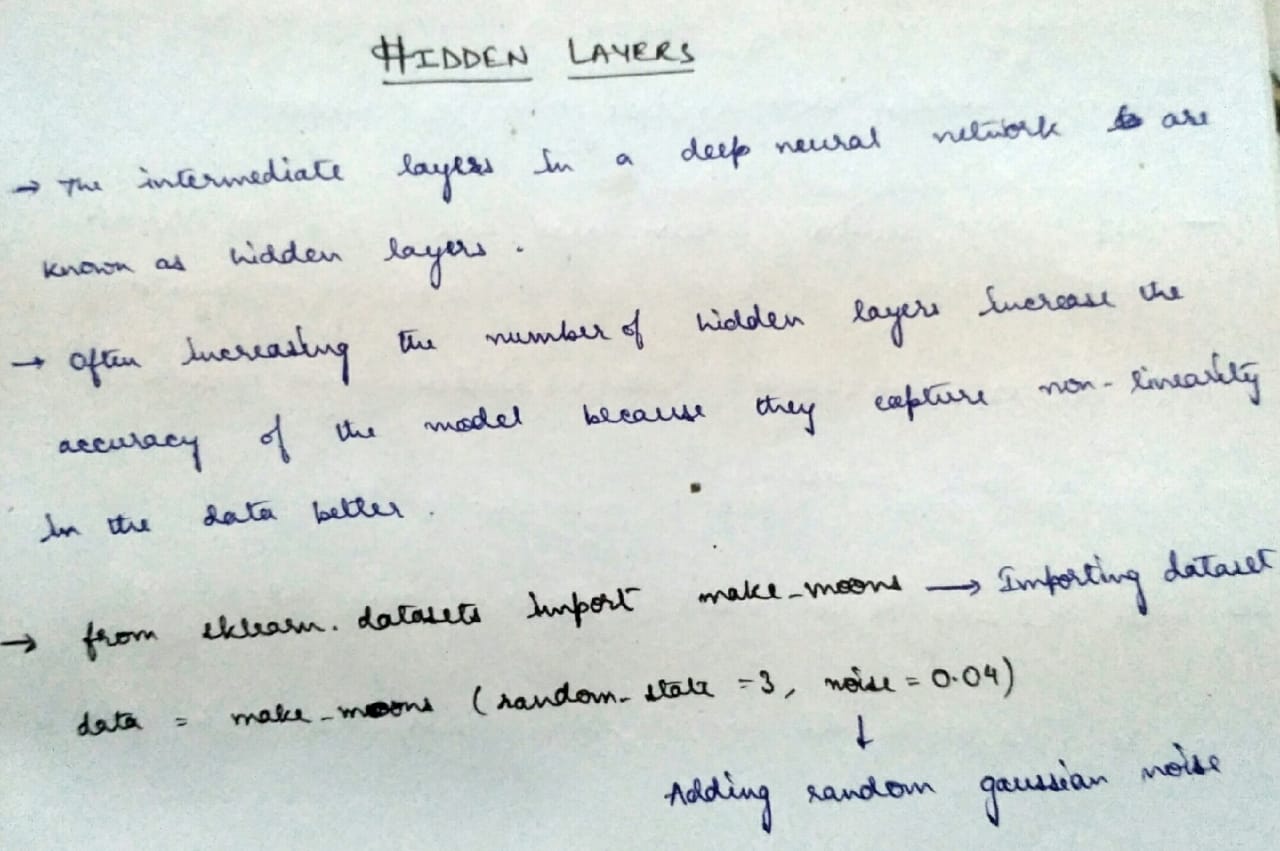 HIDDEN LAYERS
→ The intermediate layers in a deep neural network are
known as hidden layers.
→ Often increasing the number of hidden layers increase the
accuracy of the model because they capture non-linearity
in the data better.
→ from sklearn.datasets import make_moons → Importing dataset
data = make_moons (random_state = 3, noise = 0.04)
↓
Adding random gaussian noise